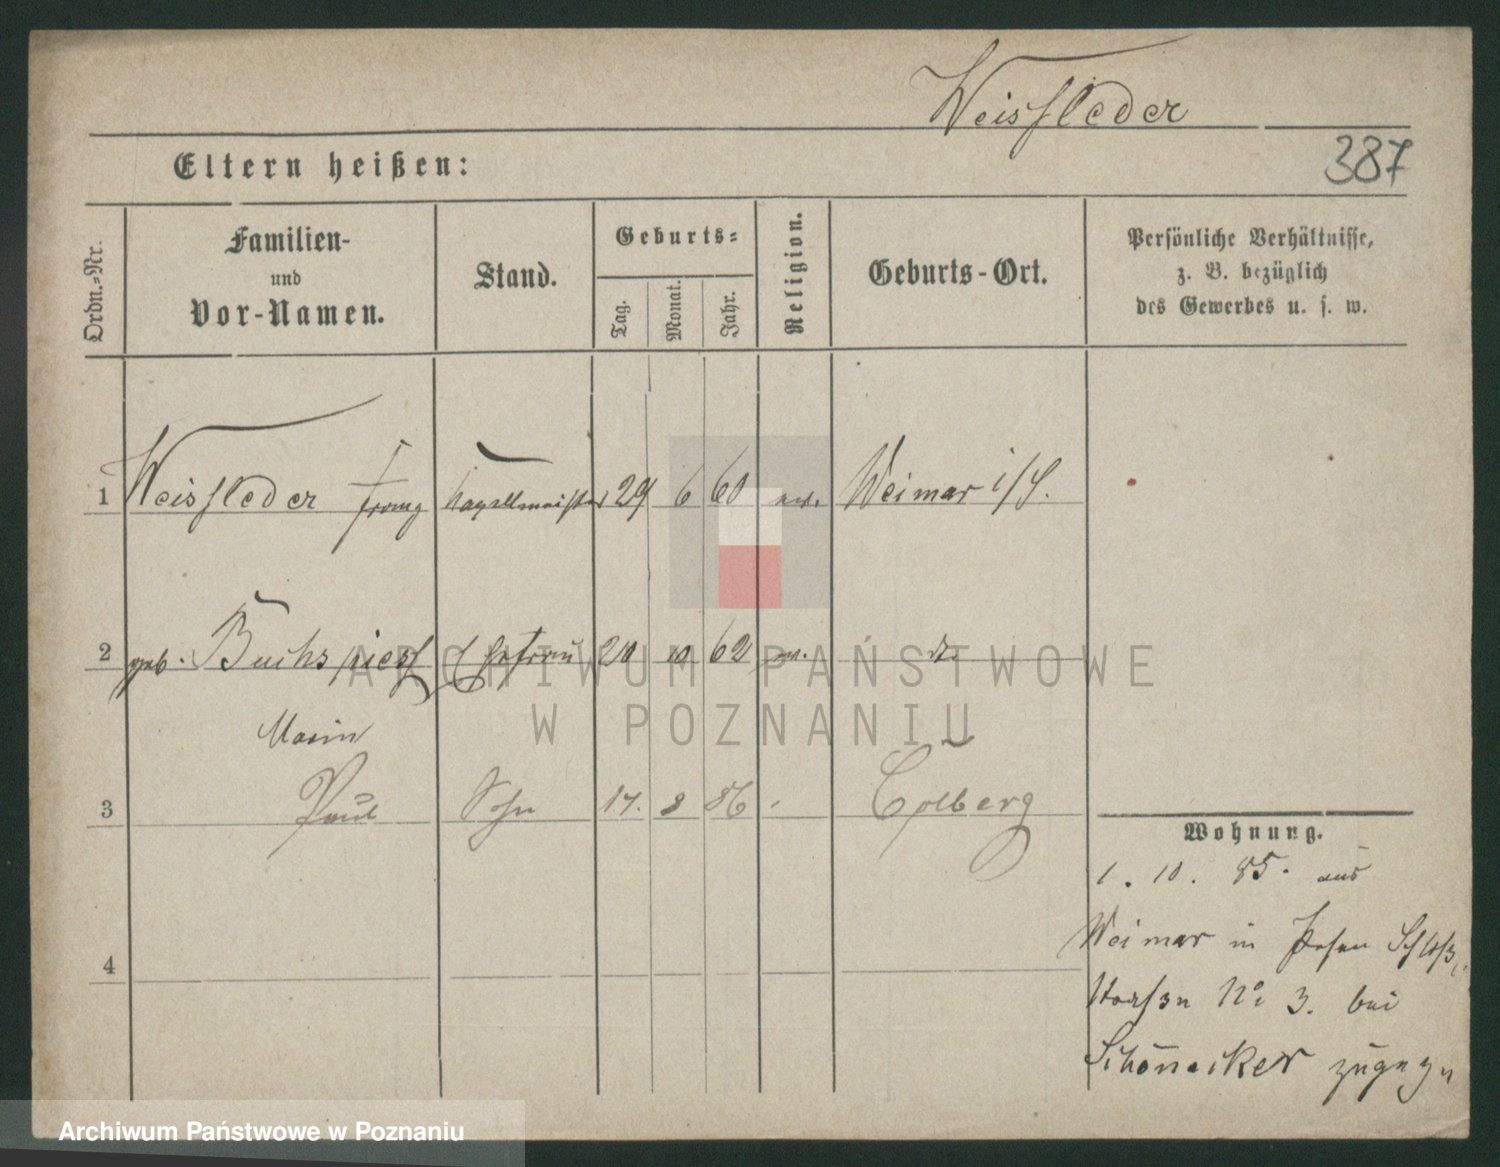 Weissleder
387
Eltern heißen:
Ordn.-Nr.
Familien- und Vor-Namen.
Stand.
Geburts-
Tag.
Monat.
Jahr.
Religion.
Geburts-Ort.
Persönliche Verhältnisse, z. B. bezüglich des Gewerbes u. s. w.
1 Weissleder Franz Kapellmeister 29 6 60 ev. Weimar
2 geb. Buchspiess Ehefrau 20 10 62 do
Marie
3 Paul Sohn 17. 8 86 Colberg
4
Wohnung.
1. 10. 85. aus
Weimar in Posen Schloß
Straße No 3. bei
Schönecker zugezn
ARCHIWUM PAŃSTWOWE
W POZNANIU
Archiwum Państwowe w Poznaniu